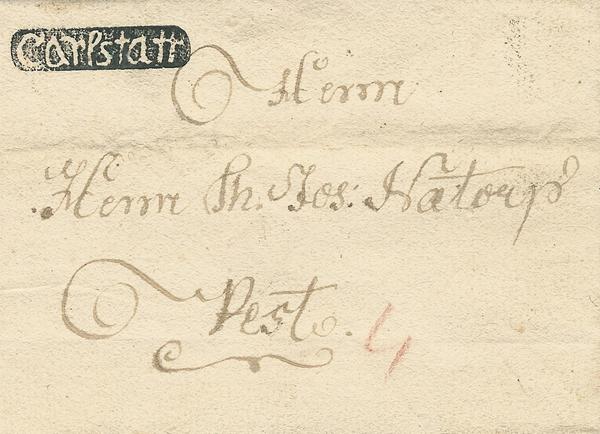 Carlstatt
Herrn
Herrn Th. Jos: Natorp
Pest.
4